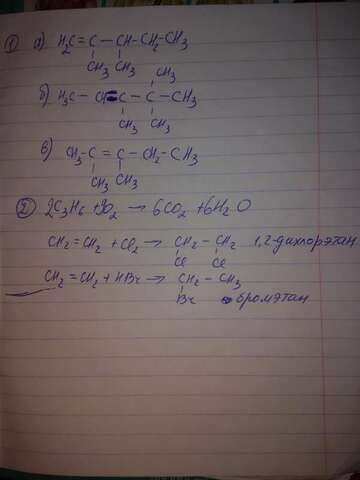 ① а) H₂C = C – CH – CH₂ – CH₃
CH₃ CH₃
CH₃
б) H₃C – CH = C – C – CH₃
CH₃ CH₃
в) CH₃ – C = C – CH₂ – CH₃
CH₃ CH₃
② 2C₃H₆ + 9O₂ → 6CO₂ + 6H₂O
CH₂ = CH₂ + Cl₂ → CH₂ – CH₂ 1,2-дихлорэтан
Cl Cl
CH₂ = CH₂ + HBr → CH₂ – CH₃
Br бромэтан